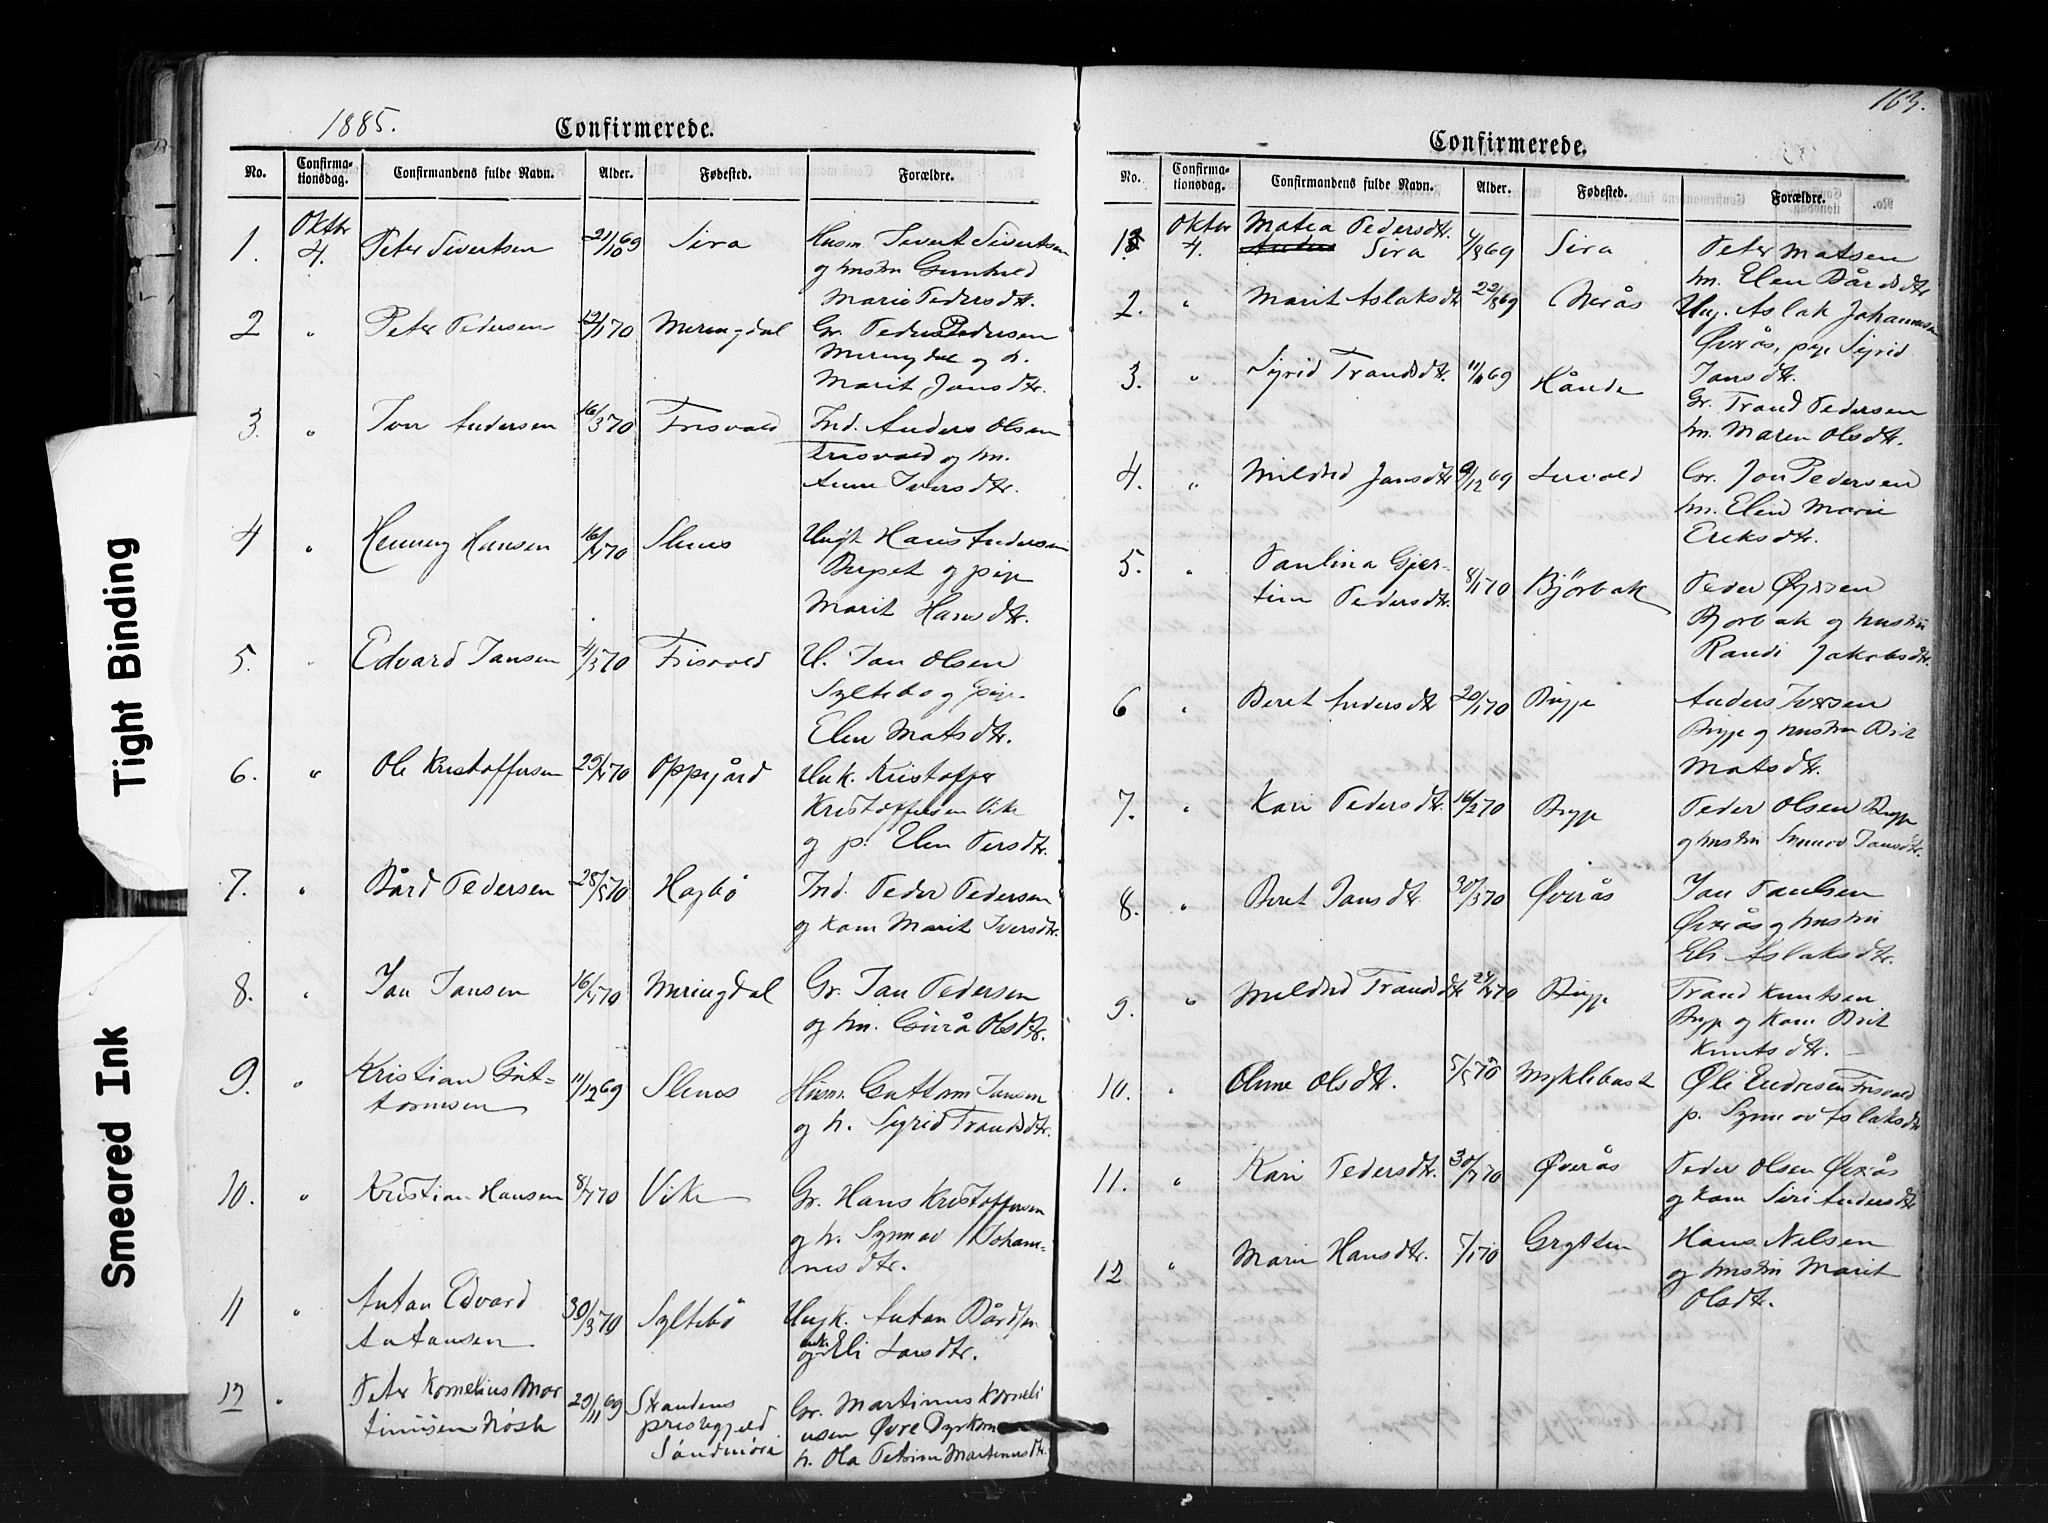 1885.
Confirmerede.
No. Confirma-
tionsdag. Confirmandens fulde Navn. Alder. Fødested. Forældre.
1. Oktbr 4. Peter Sivertsen 21/10 69 Sira Husm. Sivert Sivertsen
og hustru Gunhild
Marie Pedersdtr.
2 " Peter Pedersen 12/1 70 Meringdal Gr. Peder Pedersen
Meringdal og h.
Marit Jansdtr.
3. " Iver Andersen 16/3 70 Frisvold Ind. Anders Olsen
Frisvold og hu.
Anne Iversdtr.
4 " Henning Hansen 16/4 70 Slenes Ungk Hans Andersen
og pige
Marit Hansdtr.
5. " Edvard Jansen 4/3 70 Frisvold U. Jan Olsen
Syltebø og pige
Elen Matsdtr.
6. " Ole Kristoffersen 29/4 70 Oppigård Unk. Kristoffer
Kristoffersen Vike
og p. Elen Persdtr.
7. " Bård Pedersen 28/5 70 Hagbø Ind. Peder Pedersen
og kom Marit Iversdtr.
8. " Jan Jansen 16/4 70 Meringdal Gr. Jan Pedersen
og hu. Gurå Olsdtr.
9. " Kristian Gut-
tormsen 11/12 69 Slenes Husm. Guttorm Jansen
og h. Syrid Trondsdtr.
10. " Kristian Hansen 8/7 70 Vike Gr. Hans Kristoffersen
og h. Synnøv Johan-
nesdtr.
11 " Antan Edvard
Antansen 30/3 70 Syltebø Ungk. Antan Bårdsen
og enke Eli Larsdtr.
12 " Peter Kornelius Mar
tinusen Røsh 29/11 69 Strandens
prestegjeld
Søndmøre Gr. Martinus Korneli
usen Øvre Dyrkorn
h. Ola Petrine Martinusdtr.
163.
Confirmerede.
No. Confirma-
tionsdag. Confirmandens fulde Navn. Alder. Fødested. Forældre.
1 Oktbr 4. Matea Pedersdtr.
Sira 4/8 69 Sira Peter Matsen
hu. Elen Bårdsdtr
2. " Marit Aslaksdtr 22/8 69 Nerås Ung. Aslak Johannesen
Øverås, pige Syrid
Jansdtr.
3. " Syrid Trondsdtr. 11/11 69 Hånde Gr. Trond Pedersen
hu. Maren Olsdtr.
4. " Mildrid Jansdtr 9/12 69 Lervold Gr. Jon Pedersen
hu. Elen Marie
Eriksdtr.
5. " Paulina Gjer-
tine Pedersdtr. 8/1 70 Bjørbak Peder Øversen
Bjorbak og hustru
Randi Jakobsdtr.
6 " Beret Andersdtr 20/1 70 Bugge Anders Iversen
Bugge og hustru Brit
Matsdtr.
7. " Kari Pedersdtr. 16/2 70 Bugge Peder Olsen Bugge
og hustru Synnøv Jansdtr.
8. " Beret Jansdtr 30/3 70 Øverås Jan Paulsen
Øverås og hustru
Eli Aslaksdtr.
9. " Mildrid Trondsdtr 24/4 70 Bugge Trond Knutsen
Bugge og kom Brit
Knutsdtr.
10. " Olune Olsdtr. 5/5 70 Myklebust Ole Endresen Frisvold
p. Synnøv Aslaksdtr
11. " Kari Pedersdtr. 30/7 70 Øverås Peder Olsen Øverås
og kom Siri Andersdtr
12 " Marie Hansdtr. 5/1 70 Grytten Hans Nilsen
og hustru Marit
Olsdtr.
Tight Binding
Smeared Ink